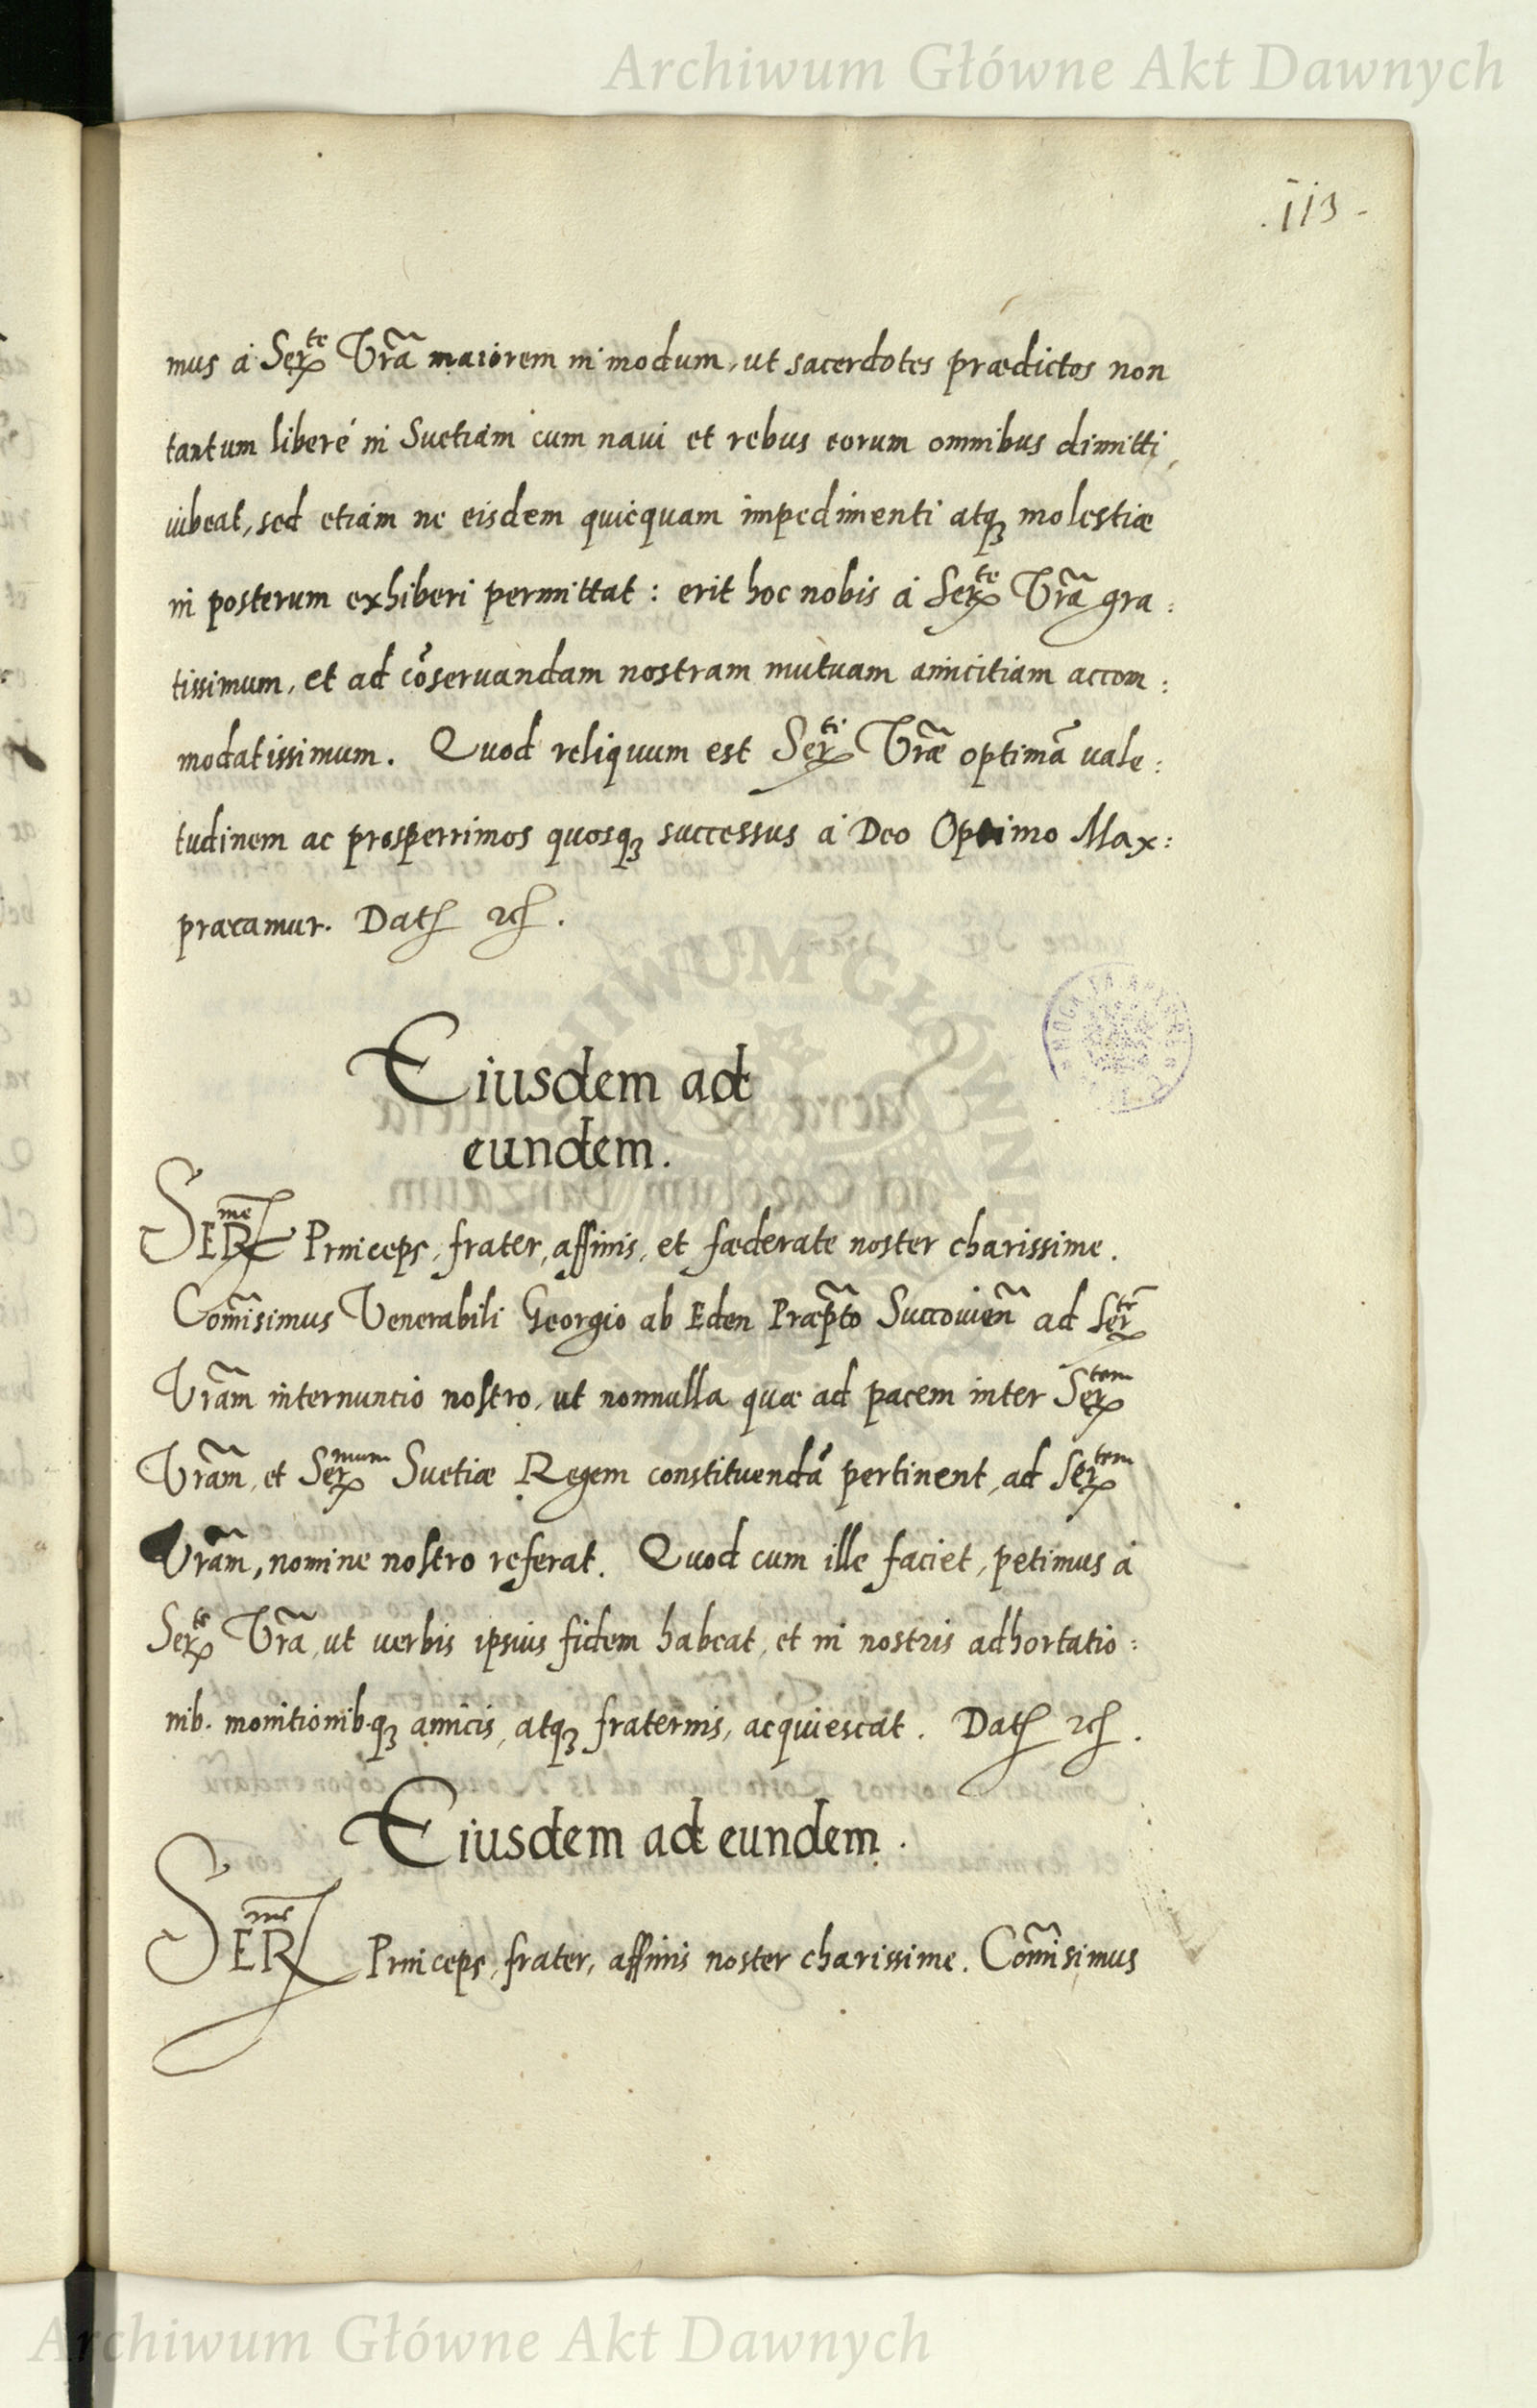 Archiwum Główne Akt Dawnych
.113.
mus à Ser^te Vr̃a maiorem in modum, ut sacerdotes prædictos non
tantum liberé in Suetiam cum naui et rebus eorum omnibus dimitti,
iubeat, sed etiam ne eisdem quicquam impedimenti atq3 molestiæ
in posterum exhiberi permittat : erit hoc nobis à Ser^te Vr̃a gra:
tissimum, et ad cõseruandam nostram mutuam amicitiam accom:
modatissimum. Quod reliquum est Ser^ti Vr̃æ optimã uale:
tudinem ac prosperrimos quosq3 successus à Deo Optimo Max:
præcamur. Dat 2c.
Eiusdem ad
eundem.
SER^me Princeps, frater, affinis, et fæderate noster charissime.
Com̃isimus Venerabili Georgio ab Eden Præp̃to Succouieñ ad Ser^te
Vr̃am internuncio nostro, ut nonnulla quæ ad pacem inter Ser^tem
Vr̃am, et Ser^mum Suetiæ Regem constituendã pertinent, ad Ser^tem
Vr̃am, nomine nostro referat. Quod cum ille faciet, petimus à
Ser^te Vr̃a, ut uerbis ipsius fidem habeat, et in nostris adhortatio:
nib. monitionib.q3 amicis, atq3 fraternis, acquiescat. Dat 2c.
Eiusdem ad eundem.
SER^me Princeps, frater, affinis noster charissime. Com̃isimus
Archiwum Główne Akt Dawnych